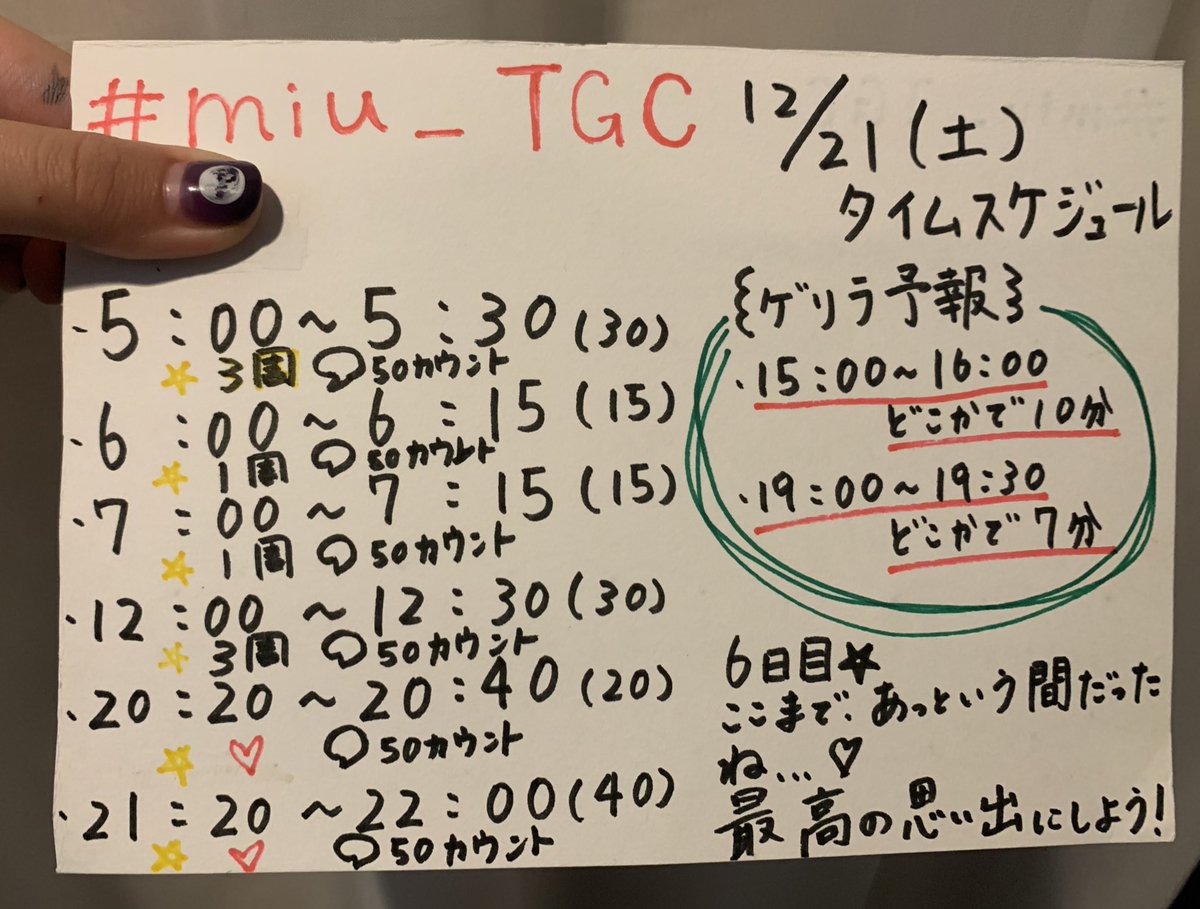 #miu_TGC
12/21(土)
タイムスケジュール
・5:00~5:30(30)
☆ 3周 50カウント
・6:00~6:15(15)
☆ 1周 50カウント
・7:00~7:15(15)
☆ 1周 50カウント
・12:00~12:30(30)
☆ 3周 50カウント
・20:20~20:40(20)
☆ ♡ 50カウント
・21:20~22:00(40)
☆ ♡ 50カウント
{ゲリラ予報}
・15:00~16:00
どこかで10分
・19:00~19:30
どこかで7分
6日目☆
ここまで、あっという間だった
ね...♡
最高の思い出にしよう!